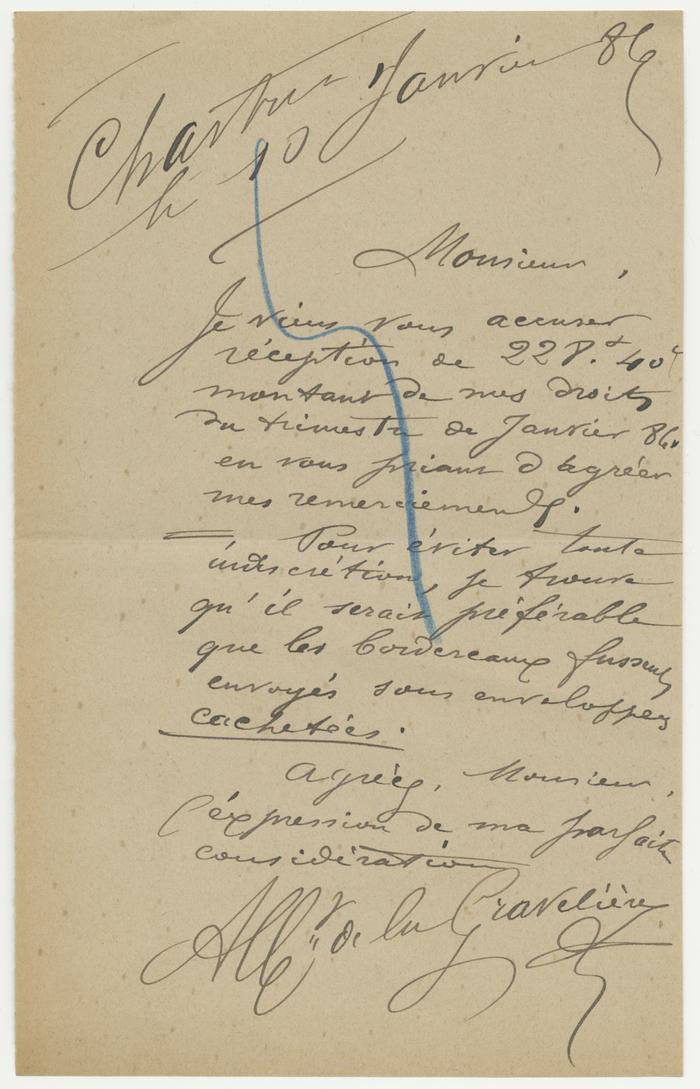 Chartres Janvier 86
le 10
Monsieur,
Je viens vous accuser
réception de 228.f 40c
montant de mes droits
du trimestre de Janvier 86.
en vous priant d'agréer
mes remerciements.
Pour éviter toute
indiscrétion, je trouve
qu'il serait préférable
que les bordereaux fussent
envoyés sous enveloppes
cachetées.
Agréez, Monsieur,
l'expression de ma parfaite
considération
de la Gravelière